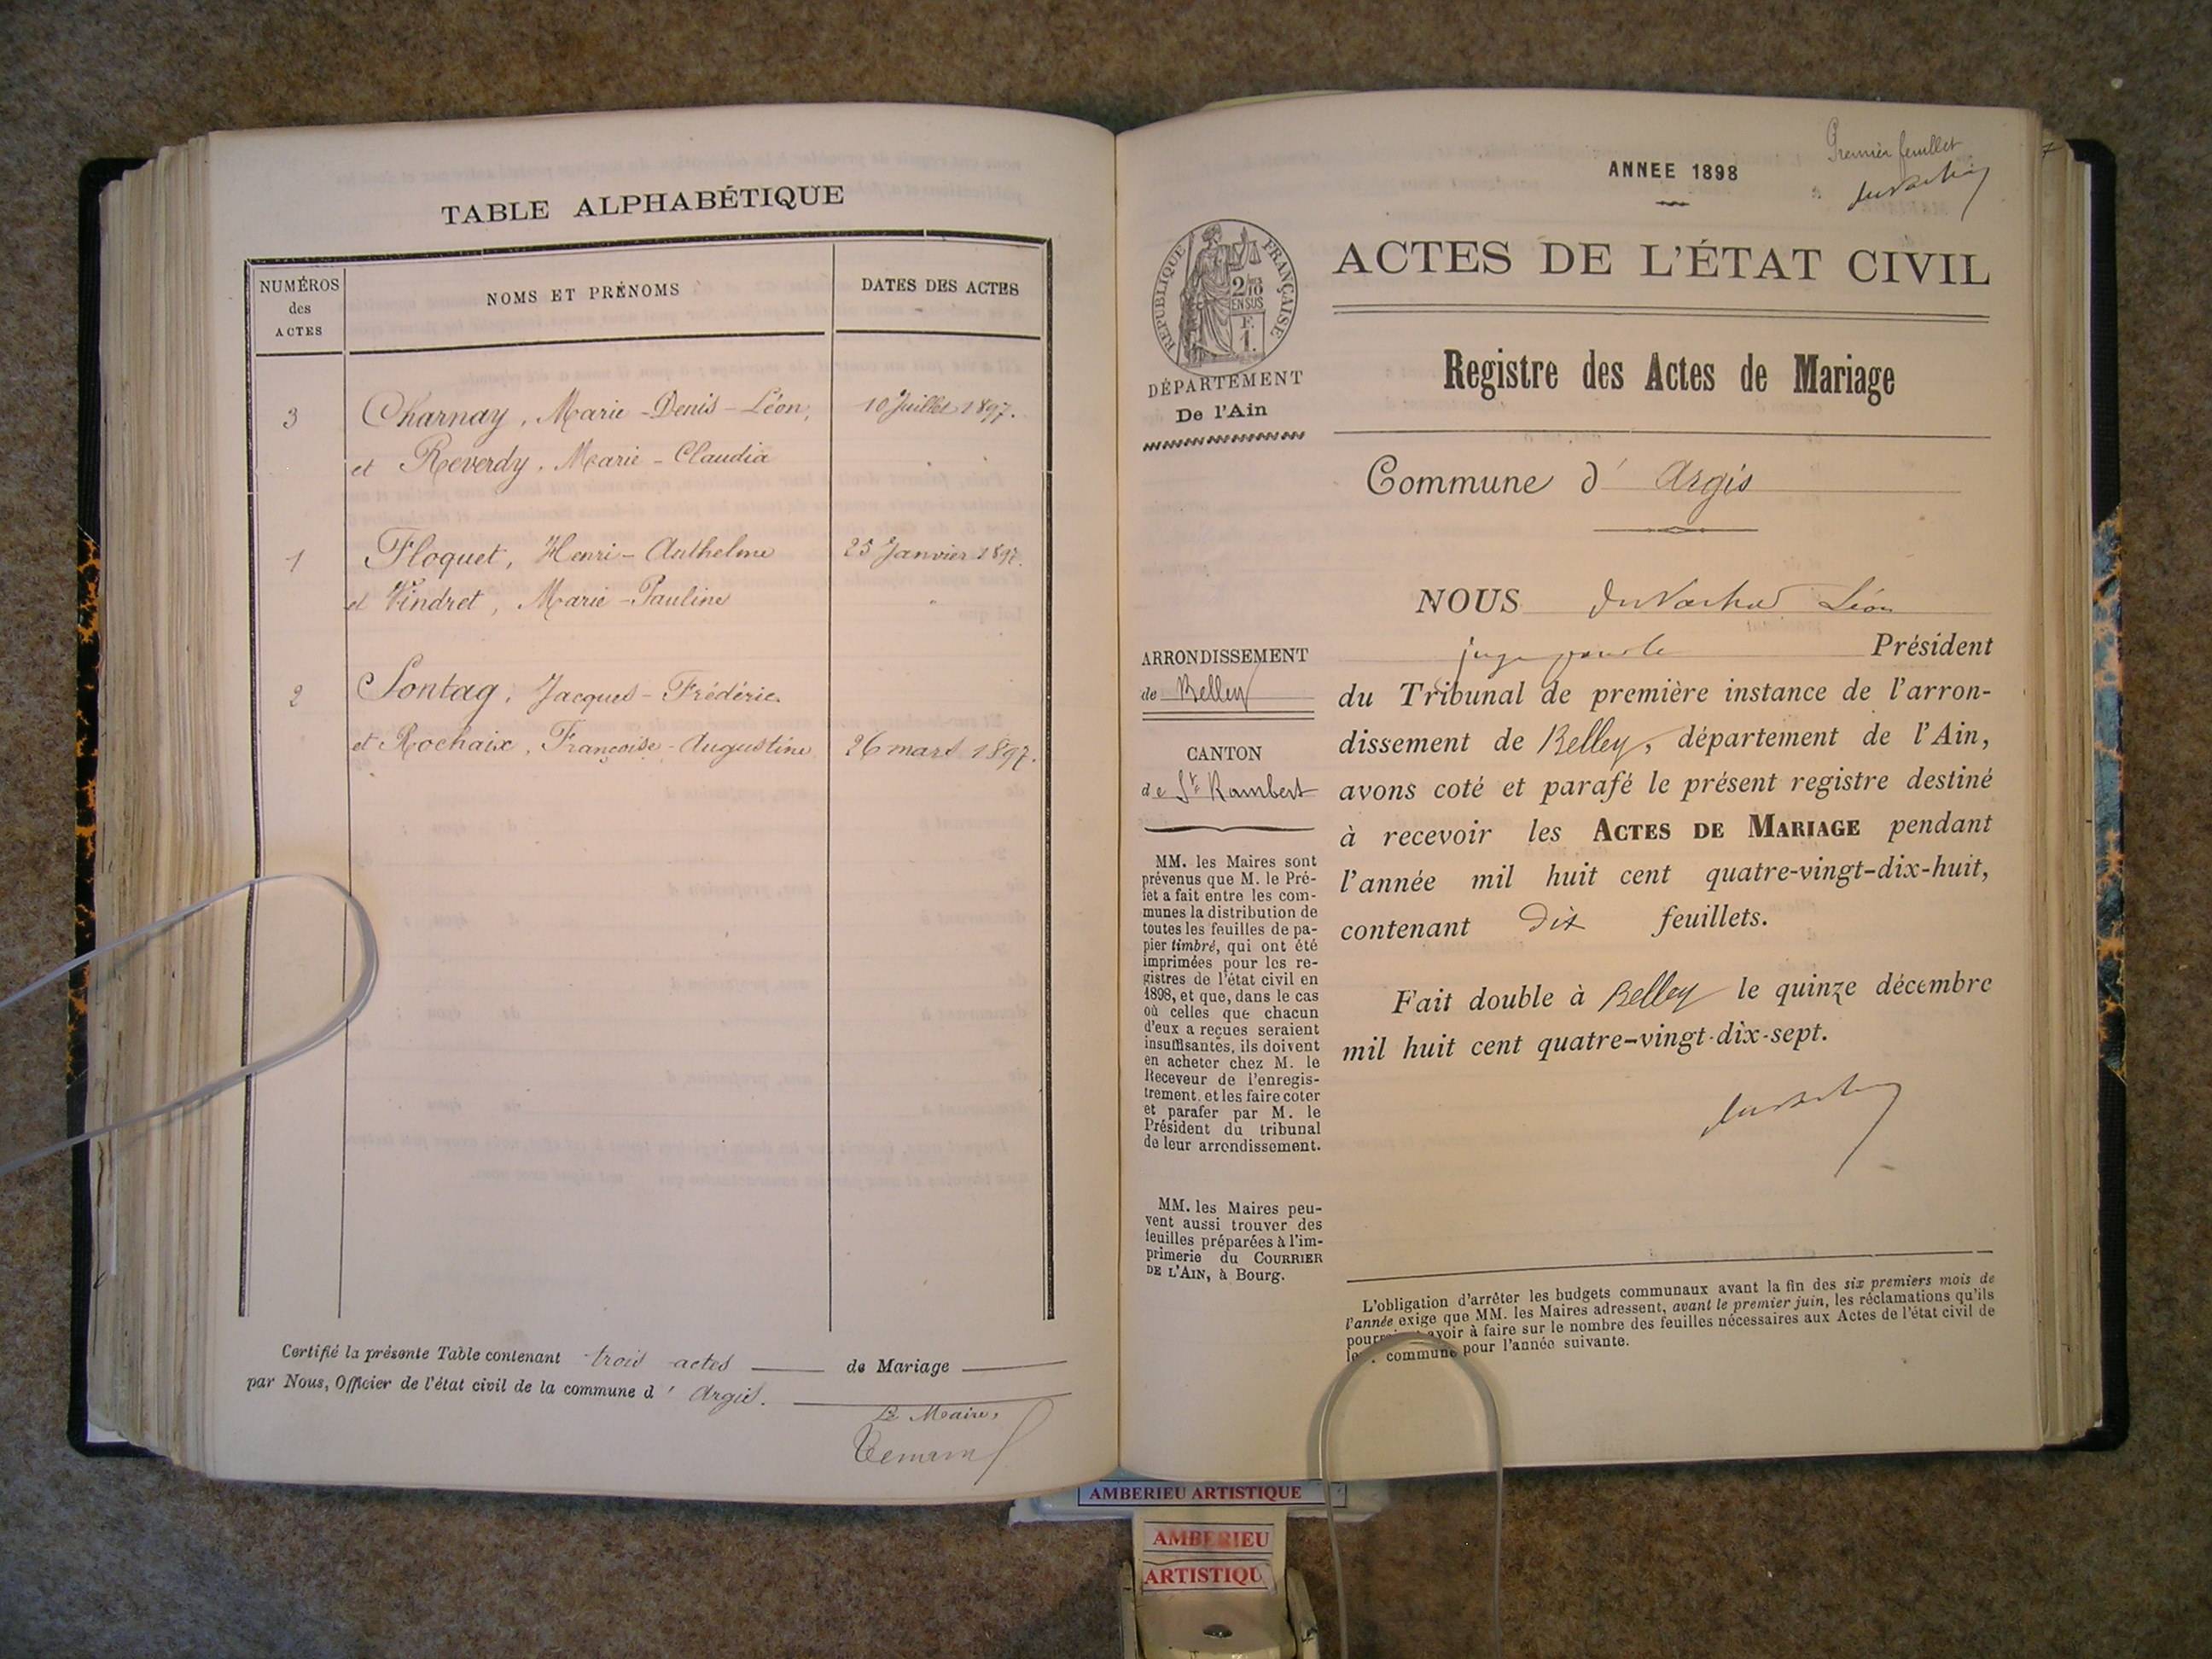 TABLE ALPHABÉTIQUE
NUMÉROS
des
ACTES
NOMS ET PRÉNOMS
DATES DES ACTES
3
Charnay, Marie-Denis-Léon,
10 Juillet 1897.
et Reverdy, Marie-Claudia
1
Floquet, Henri-Anthelme
25 Janvier 1897.
et Vindret, Marie-Pauline
2
Sontag, Jacques-Frédéric
et Rochaix, Françoise-Augustine
26 mars 1897.
Certifié la présente Table contenant trois actes de Mariage
par Nous, Officier de l'état civil de la commune d' Argis.
Le Maire,
Premier feuillet
ANNEE 1898
RÉPUBLIQUE FRANÇAISE
2/10
EN SUS
F.
1.
DÉPARTEMENT
De l'Ain
ACTES DE L'ÉTAT CIVIL
Registre des Actes de Mariage
Commune d' Argis
ARRONDISSEMENT
de Belley
CANTON
de St Rambert
MM. les Maires sont
prévenus que M. le Pré-
fet a fait entre les com-
munes la distribution de
toutes les feuilles de pa-
pier timbré, qui ont été
imprimées pour les re-
gistres de l'état civil en
1898, et que, dans le cas
où celles que chacun
d'eux a reçues seraient
insuffisantes, ils doivent
en acheter chez M. le
Receveur de l'enregis-
trement, et les faire coter
et parafer par M. le
Président du tribunal
de leur arrondissement.
MM. les Maires peu-
vent aussi trouver des
feuilles préparées à l'im-
primerie du COURRIER
DE L'AIN, à Bourg.
NOUS Léon
Président
du Tribunal de première instance de l'arron-
dissement de Belley, département de l'Ain,
avons coté et parafé le présent registre destiné
à recevoir les ACTES DE MARIAGE pendant
l'année mil huit cent quatre-vingt-dix-huit,
contenant Dix feuillets.
Fait double à Belley le quinze décembre
mil huit cent quatre-vingt-dix-sept.
L'obligation d'arrêter les budgets communaux avant la fin des six premiers mois de
l'année exige que MM. les Maires adressent, avant le premier juin, les réclamations qu'ils
avoir à faire sur le nombre des feuilles nécessaires aux Actes de l'état civil de
commune pour l'année suivante.
AMBERIEU ARTISTIQUE
AMBERIEU
ARTISTIQU